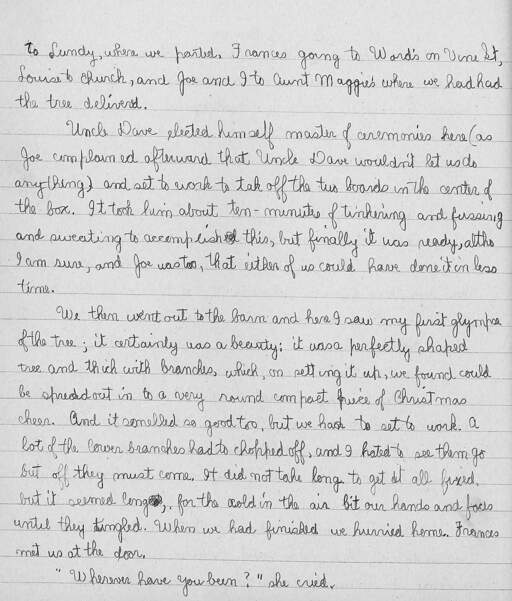 to Lundy, where we parted, Frances going to Ward's on Vine St,
Louise to church, and Joe and I to Aunt Maggie's where we had had
the tree deliverd.
Uncle Dave elected himself master of ceremonies here (as
Joe complained afterward that Uncle Dave wouldn't let us do
anything) and set to work to tak off the two boards in the center of
the box. It took him about ten-minutes of tinkering and fussing
and sweating to accomplish this, but finally it was ready, altho
I am sure, and Joe was too, that either of us could have done it in less
time.
We then went out to the barn and here I saw my first glympse
of the tree; it certainly was a beauty; it was a perfectly shaped
tree and thick with branches, which, on setting it up, we found could
be spread out in to a very round compact piece of Christmas
cheer. And it smelled so good too, but we had to set to work. A
lot of the lower branches had to chopped off, and I hated to see them go
but off they must come. It did not take long to get it all fixed,
but it seemed long, for the cold in the air bit our hands and faces
until they tingled. When we had finished we hurried home. Frances
met us at the door.
"Wherever have you been?" she cried.